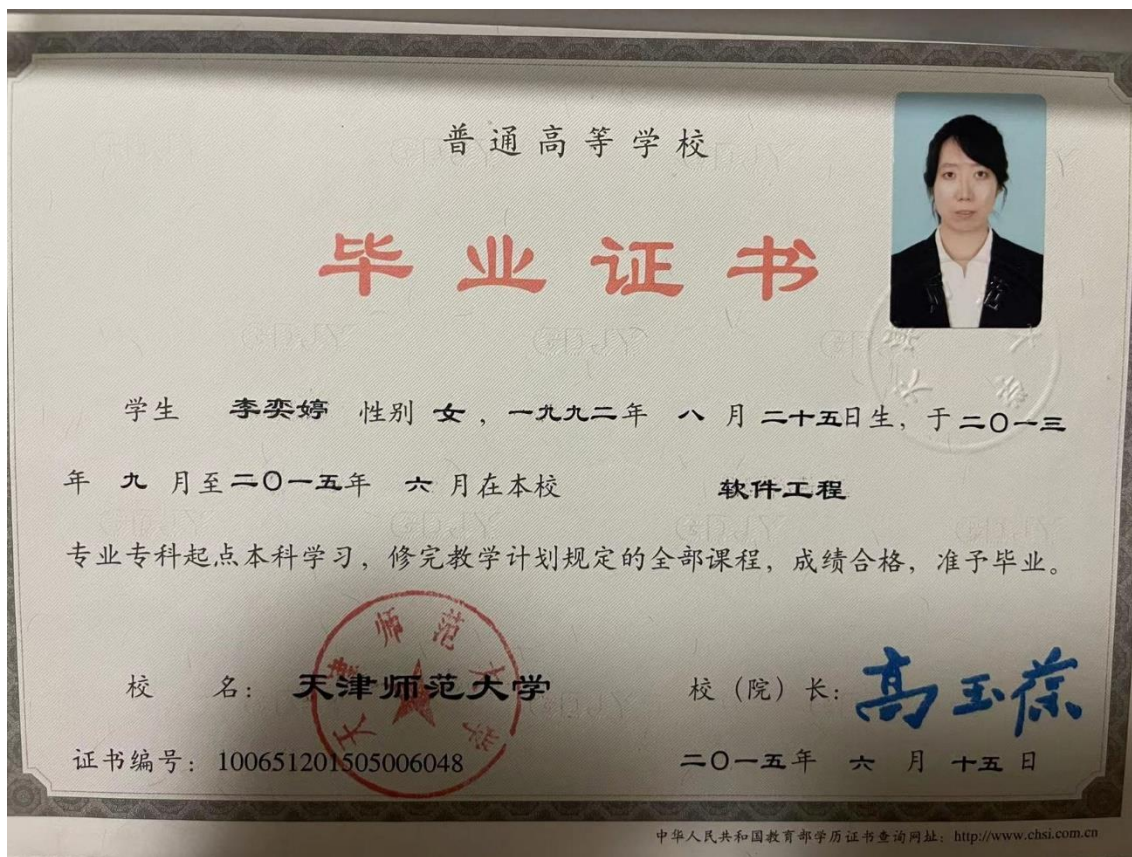 普通高等学校
毕业证书
学生 李奕婷 性别 女，一九九二年 八 月 二十五日生，于二〇一三
年 九 月至二〇一五年 六 月在本校 软件工程
专业专科起点本科学习，修完教学计划规定的全部课程，成绩合格，准予毕业。
校 名：天津师范大学 校（院）长：高玉葆
天津师范大学
证书编号：100651201505006048 二〇一五年 六 月 十五 日
中华人民共和国教育部学历证书查询网址：http://www.chsi.com.cn